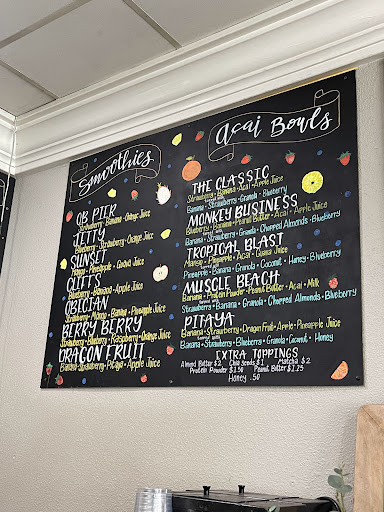 Smoothies
OB PIER
Strawberry • Banana • Orange Juice
JETTY
Blueberry • Strawberry • Orange Juice
SUNSET
Mango • Pineapple • Guava Juice
CLIFFS
Blueberry • Banana • Apple Juice
OBECIAN
Strawberry • Mango • Banana • Pineapple Juice
BERRY BERRY
Strawberry • Blueberry • Raspberry • Orange Juice
DRAGON FRUIT
Banana • Strawberry • Pitaya • Apple Juice
Acai Bowls
THE CLASSIC
Strawberry • Banana • Acai • Apple Juice
Banana • Strawberry • Granola • Blueberry
MONKEY BUSINESS
Blueberry • Banana • Peanut Butter • Acai • Apple Juice
Banana • Strawberry • Granola • Chopped Almonds • Blueberry
TROPICAL BLAST
Mango • Pineapple • Acai • Guava Juice
Pineapple • Banana • Granola • Coconut • Honey • Blueberry
MUSCLE BEACH
Banana • Protein Powder • Peanut Butter • Acai • Milk
Strawberry • Banana • Granola • Chopped Almonds • Blueberry
PITAYA
Banana • Strawberry • Dragon Fruit • Apple • Pineapple Juice
Banana • Strawberry • Blueberry • Granola • Coconut • Honey
EXTRA TOPPINGS
Almond Butter $2 Chia Seeds $1 Matcha $2
Protein Powder $1.50 Peanut Butter $1.25
Honey .50